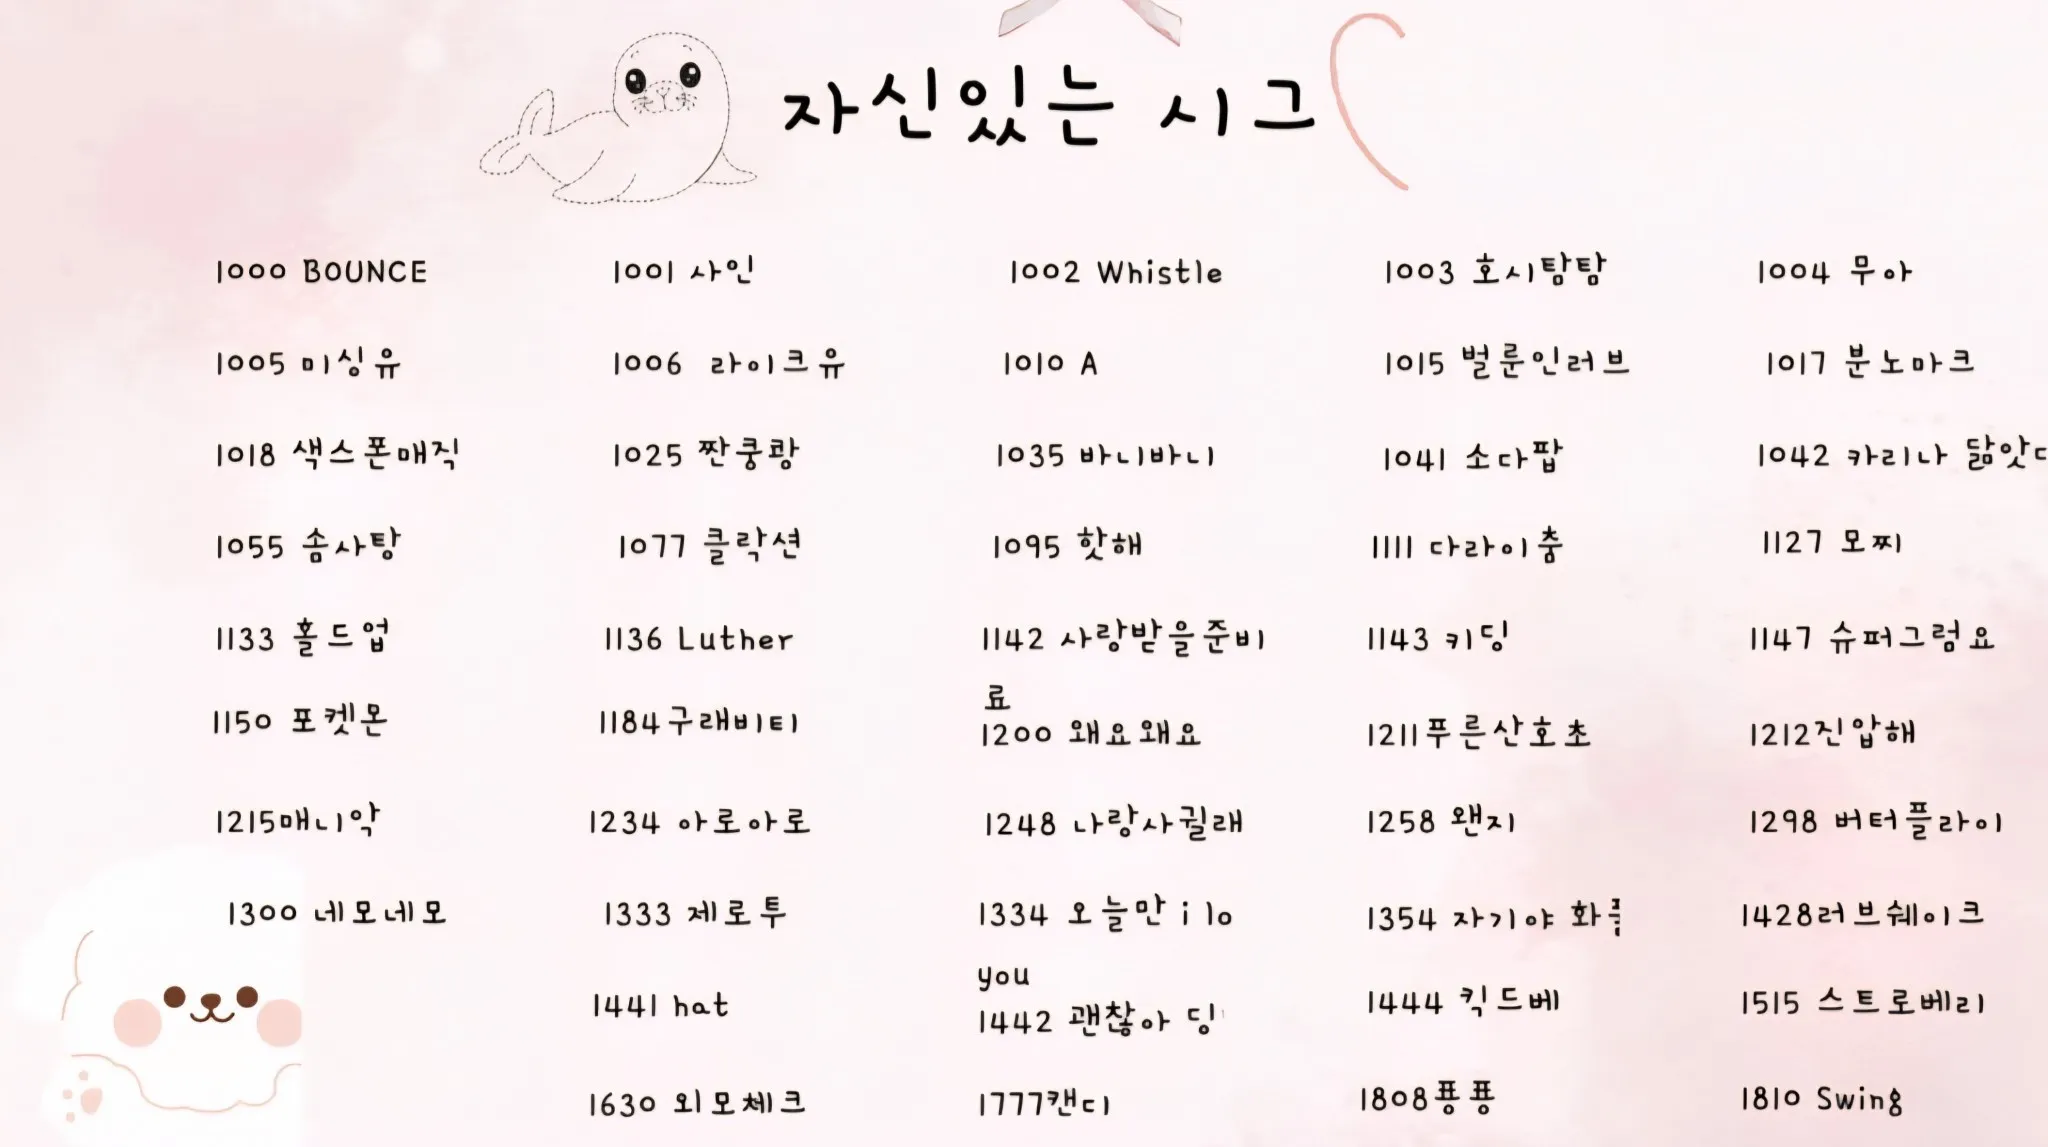 자신있는 시그
1000 BOUNCE 1001 사인 1002 Whistle 1003 호시탐탐 1004 무아
1005 미싱유 1006 라이크유 1010 A 1015 벌룬인러브 1017 분노마크
1018 색스폰매직 1025 짠쿵쾅 1035 바니바니 1041 소다팝 1042 카리나 닮앗
1055 솜사탕 1077 클락션 1095 핫해 1111 다라이춤 1127 모찌
1133 홀드업 1136 Luther 1142 사랑받을준비 1143 키딩 1147 슈퍼그럼요
료
1150 포켓몬 1184구래비티 1200 왜요왜요 1211푸른산호초 1212진압해
1215매니악 1234 아로아로 1248 나랑사귈래 1258 왠지 1298 버터플라이
1300 네모네모 1333 제로투 1334 오늘만 i lo 1354 자기야 화 1428러브쉐이크
you
1441 hat 1442 괜찮아 딩 1444 킥드베 1515 스트로베리
1630 외모체크 1777캔디 1808퐁퐁 1810 Swing